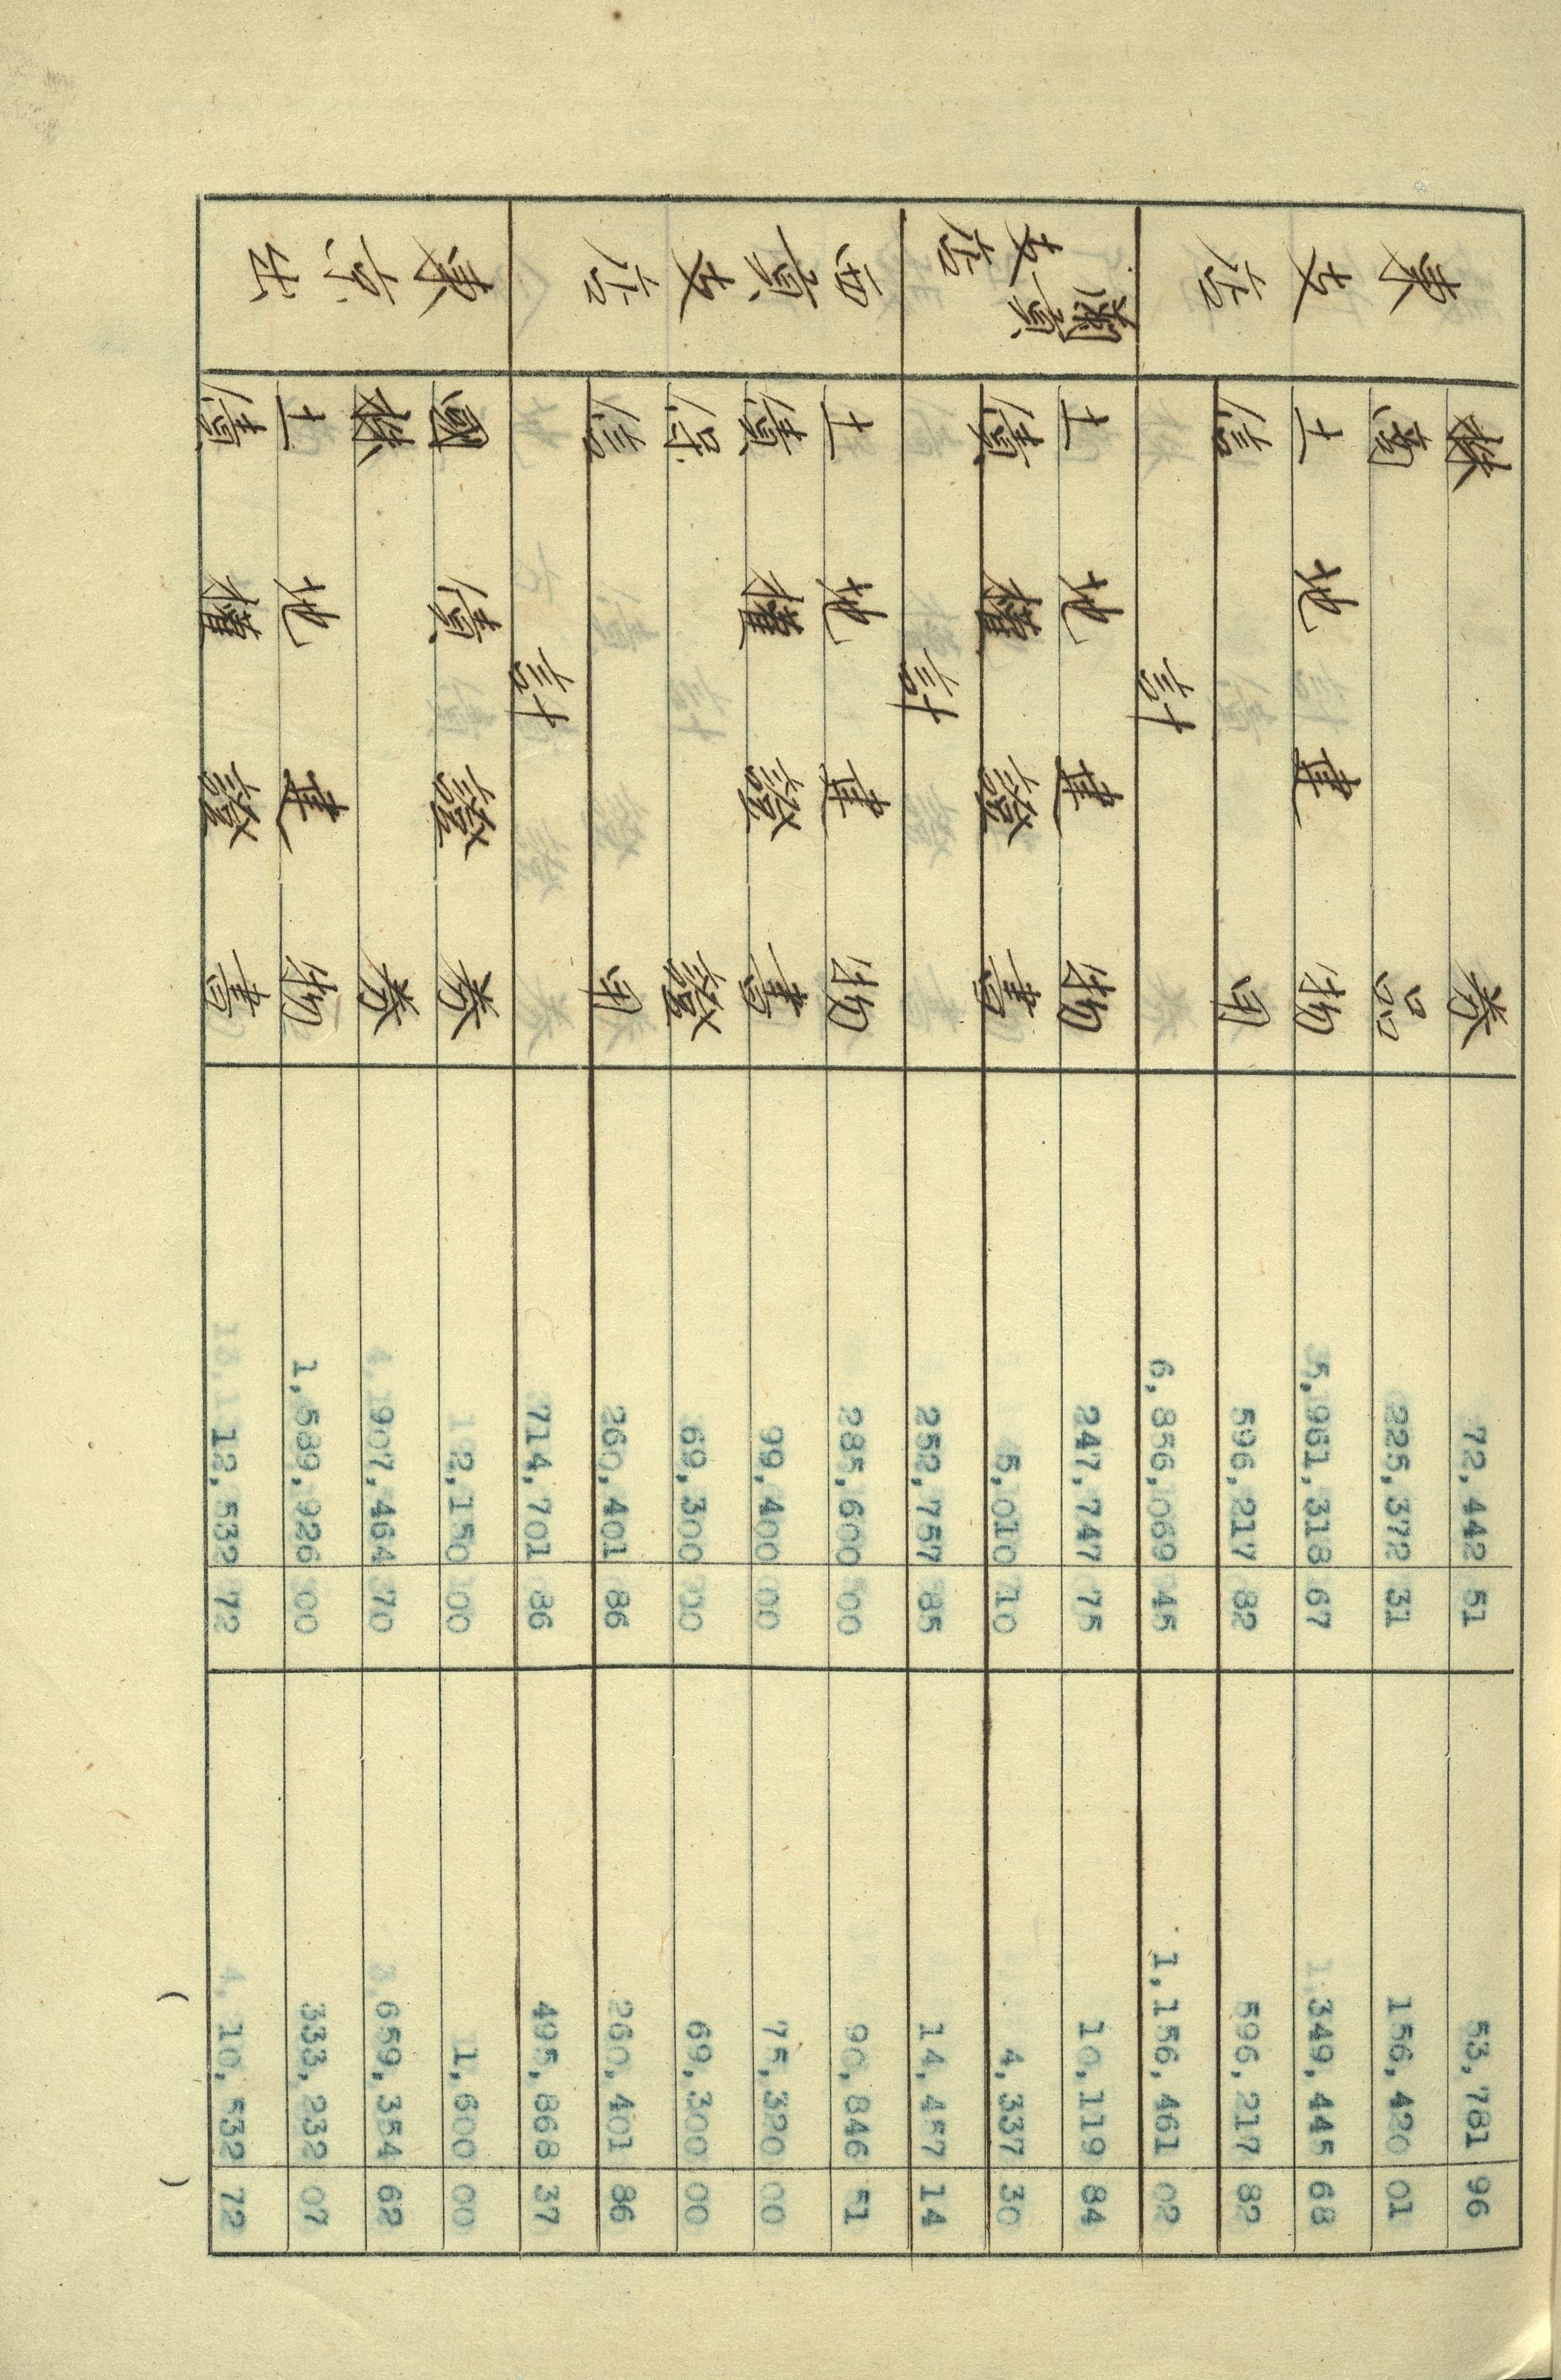 東支店
株券 72,442 51 53,781 96
商品 225,372 31 156,420 01
土地建物 5,961,318 67 349,445 68
信用 596,217 82 596,217 82
計 6,856,069 45 1,156,461 02
蘭貢支店
土地建物 247,747 75 10,119 84
債權證書 5,010 10 4,337 30
計 252,757 85 14,457 14
西貢支店
土地建物 285,600 00 90,846 51
債權證書 99,400 00 75,320 00
保證 69,300 00 69,300 00
信用 260,401 86 260,401 86
計 714,701 86 495,868 37
東京出
國債證券 2,150 00 1,600 00
株券 907,464 70 659,354 62
土地建物 1,589,926 00 333,232 07
債權證書 12,532 72 10,532 72
( )